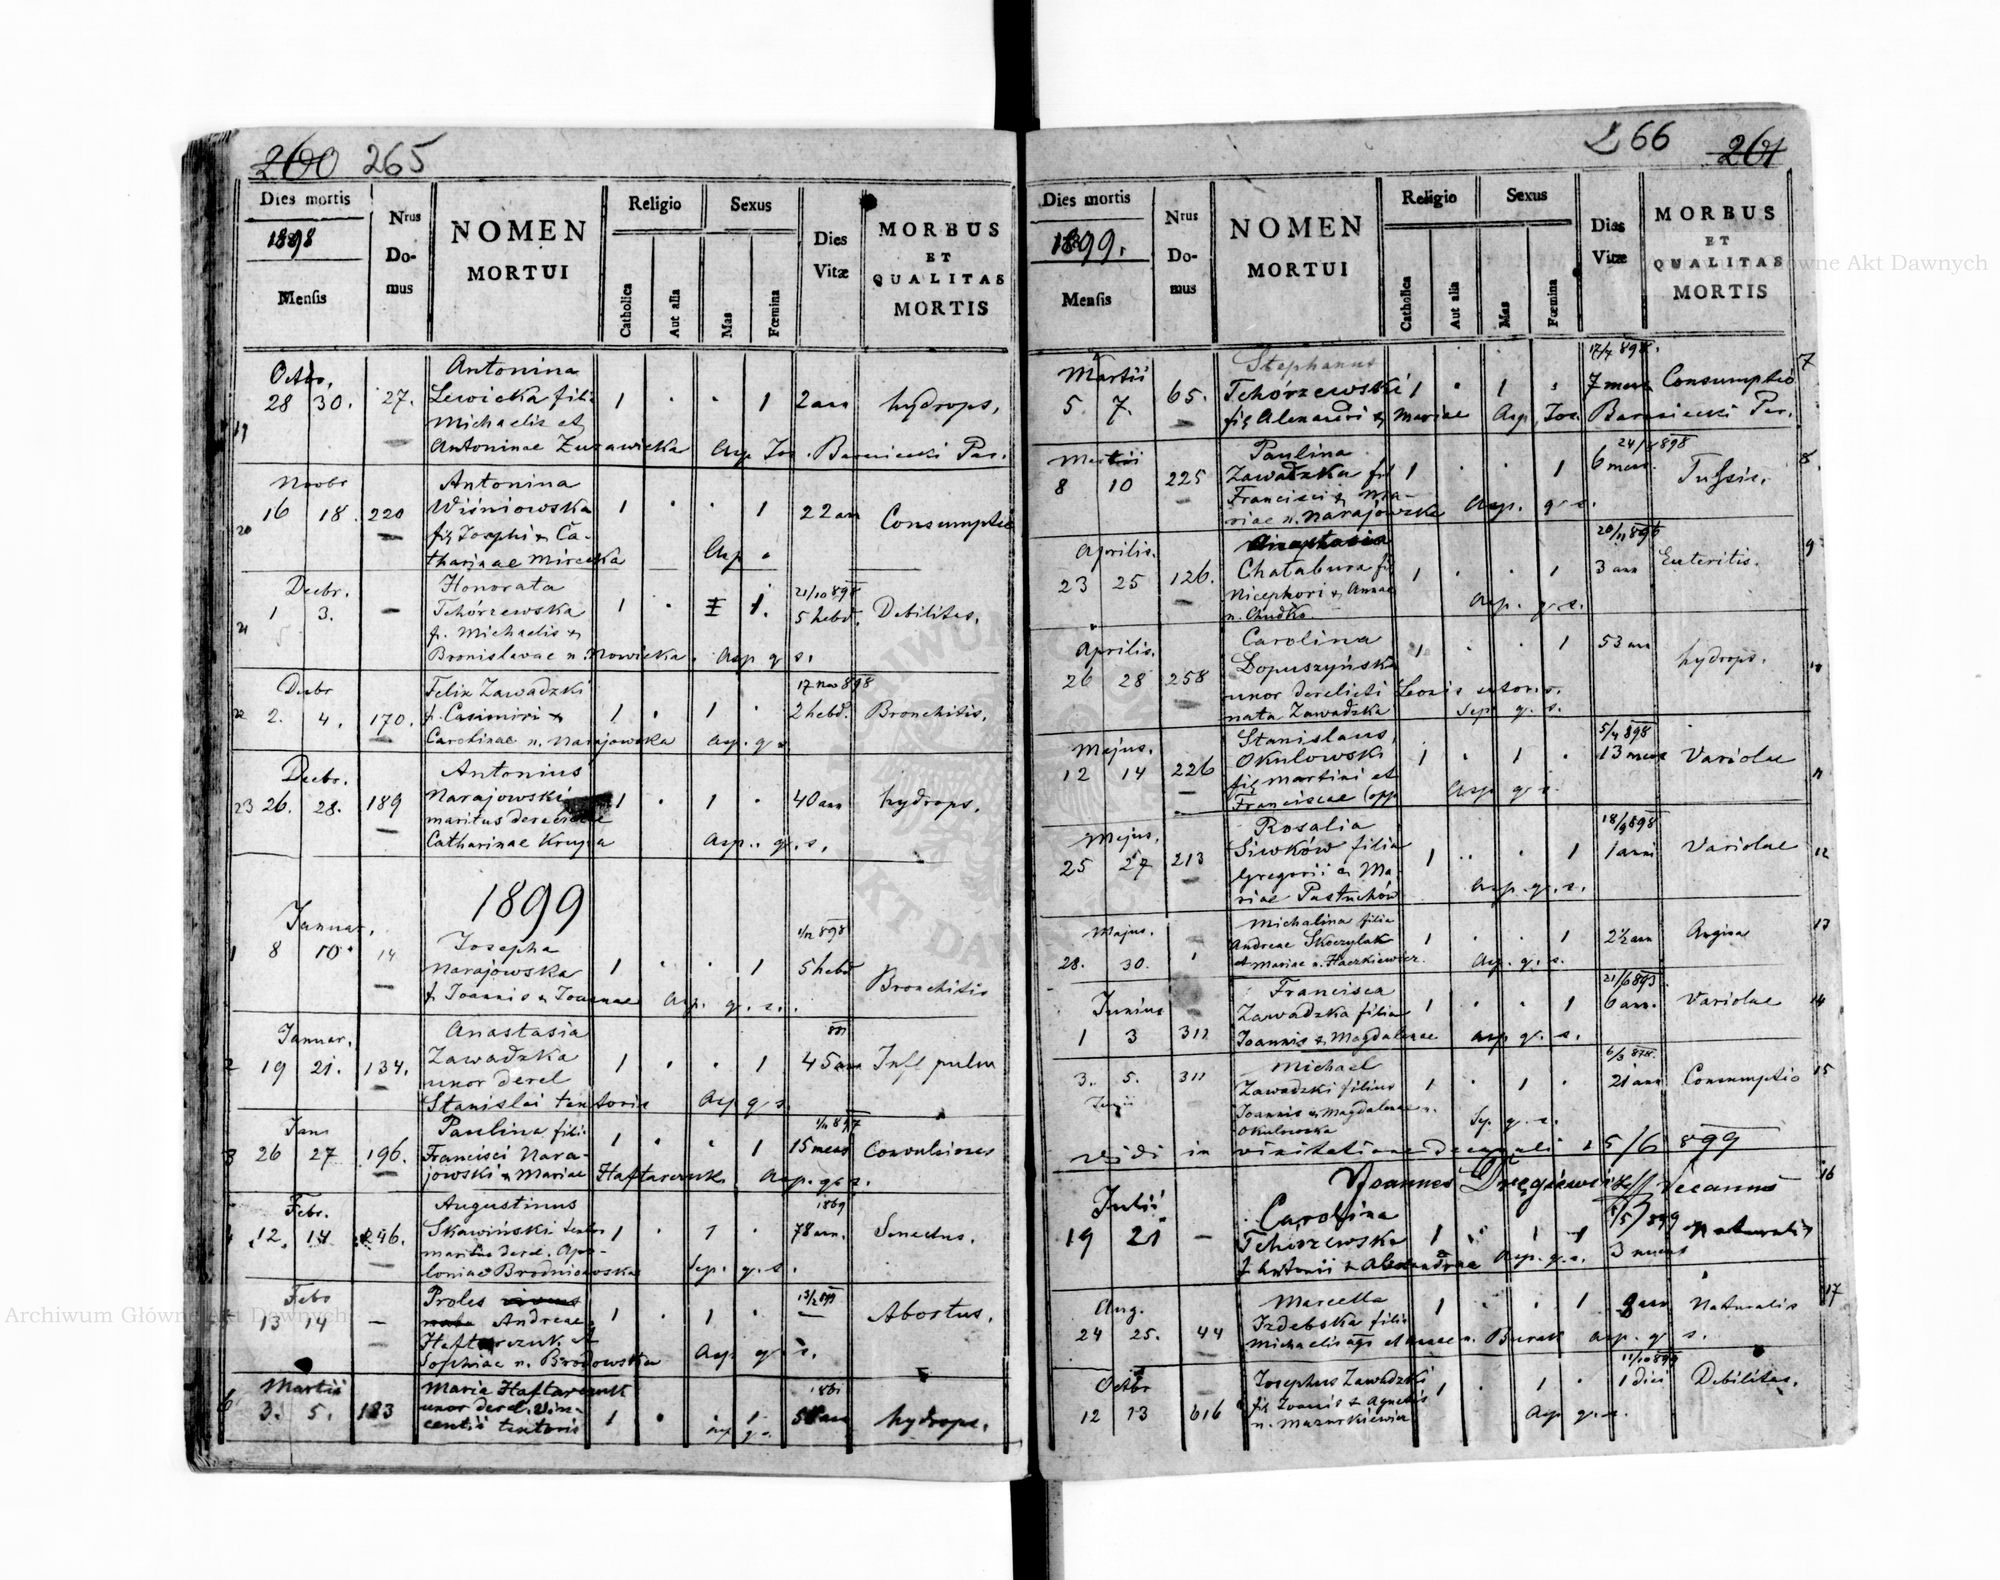 260 265
Dies mortis
1898
Mensis
Nrus
Do-
mus
NOMEN
MORTUI
Religio
Catholica
Aut alia
Sexus
Mas
Fœmina
Dies
Vitæ
MORBUS
ET
QUALITAS
MORTIS
19
Octbr.
28 30. 27.
Antonina
Lewicka filia
Michaelis et
Antoninae Zurawicka
1 . . 1 2 ann hydrops.
Asp. Jos. Barnicki Par.
20
Novbr
16 18. 220
Antonina
Wiśniowska
fil Josephi & Ca-
tharinae Mirecka
1 . . 1 22 ann Consumptio
Asp.
21
Decbr.
1 3. —
Honorata
Tchórzewska
f. Michaelis &
Bronislavae n. Nowicka.
1 . 1.
21/10 898
5 hebd. Debilitas.
Asp g s.
22
Decbr
2. 4. 170.
Felix Zawadzki
f. Casimiri &
Carolinae n. Narajowska
1 . 1 .
17 nov 898
2 hebd. Bronchitis.
Asp. g s
23
Decbr.
26. 28. 189
Antonius
Narajowski
maritus derelictae
Catharinae Krupa
1 . 1 . 40 ann hydrops.
Asp. g. s.
1899
1
Januar.
8 10. 14
Josepha
Narajowska
f. Joannis & Joannae
1 . . 1
1/12 898
5 hebd Bronchitis
Asp. g. s.
2
Januar.
19 21. 134.
Anastasia
Zawadzka
uxor derel
Stanislai textoris
1 . . 1 45 ann Infl pulm
Asp g s.
3
Janu
26 27 196.
Paulina filia
Francisci Nara-
jowski & Mariae Haftarczuk
1 . . 1
15 mens Convulsiones
Asp. g. s.
4
Febr.
12. 14 246.
Augustinus
Skawiński textor
maritus derel. Apo-
loniae Brodniowska
1 . 1 .
1869
78 ann. Senectus.
Sep. g. s.
Febr
13 14 —
Proles
Andreae
Haftarczuk et
Sophiae n. Brodowska
1 . 1 .
13/2 899
— Abortus.
Asp g. s.
6
Martii
3. 5. 183
Maria Haftarczuk
uxor derel. Vin-
centii textoris
1 . . 1
58 ann hydrops.
266 261
Dies mortis
1899.
Mensis
Nrus
Do-
mus
NOMEN
MORTUI
Religio
Catholica
Aut alia
Sexus
Mas
Fœmina
Dies
Vitæ
MORBUS
ET
QUALITAS
MORTIS
7
Martii
5 7. 65.
Stephanus
Tchórzewski
fil Alexandri & Mariae
1 . 1 .
7 mens Consumptio
Asp. Jos. Barnicki Par.
8
Martii
8 10 225
Paulina
Zawadzka fil
Francisci & Ma-
riae n. Narajowska
1 . . 1
6 mens. Tussis.
Asp. g. s.
9
Aprilis.
23 25 126.
Anastasia
Chatabura fil
Nicephori & Annae
n. Chudko.
1 . . 1
20/11 896
3 ann Enteritis.
Asp. g. s.
10
Aprilis.
26 28 258
Carolina
Dopuszyńska
uxor derelicti Leonis sutoris.
nata Zawadzka
1 . . 1 53 ann hydrops.
Sep g. s.
11
Majus.
12 14 226
Stanislaus
Okulowski
fil Martini et
Franciscae
1 . 1 .
5/4 898
13 mens Variolae
Asp g s.
12
Majus.
25 27 213
Rosalia
Siwków filia
Gregorii & Ma-
riae Pastuchów
1 . . 1
18/9 898
1 anni Variolae
Asp. g. s.
13
Majus.
28. 30.
Michalina filia
Andreae Skoczylak
et Mariae n. Haczkiewicz.
1 . . 1 2½ ann Angina
Asp. g. s.
14
Junius
1 3 311
Francisca
Zawadzka filia
Joannis & Magdalenae
1 . . 1
21/6 893
6 ann. Variolae
Asp g. s.
15
3. 5. 311
Junii
Michael
Zawadzki filius
Joannis & Magdalenae n.
Okulowska
1 . 1 .
21 ann Consumptio
Sep. g. s.
vidi in visitatione decanali 5/6 899
Joannes Decanus
16
Julii
19 21 —
Carolina
Tchórzewska
f. Antonii & Alexandrae
1
3 mens Naturalis
Asp. g. s.
17
Aug.
24 25. 44
Marcella
Izdebska filia
Michaelis n. Burak
1 . . 1 ann Naturalis
Asp. g s.
Octbr
12 13 616
Josephus Zawadzki
fil Joannis & Agnetis
n. Mazurkiewicz
1 . 1 .
11/10 899
1 diei Debilitas.
Asp g. s.
Archiwum Główne Akt Dawnych
Archiwum Główne Akt Dawnych